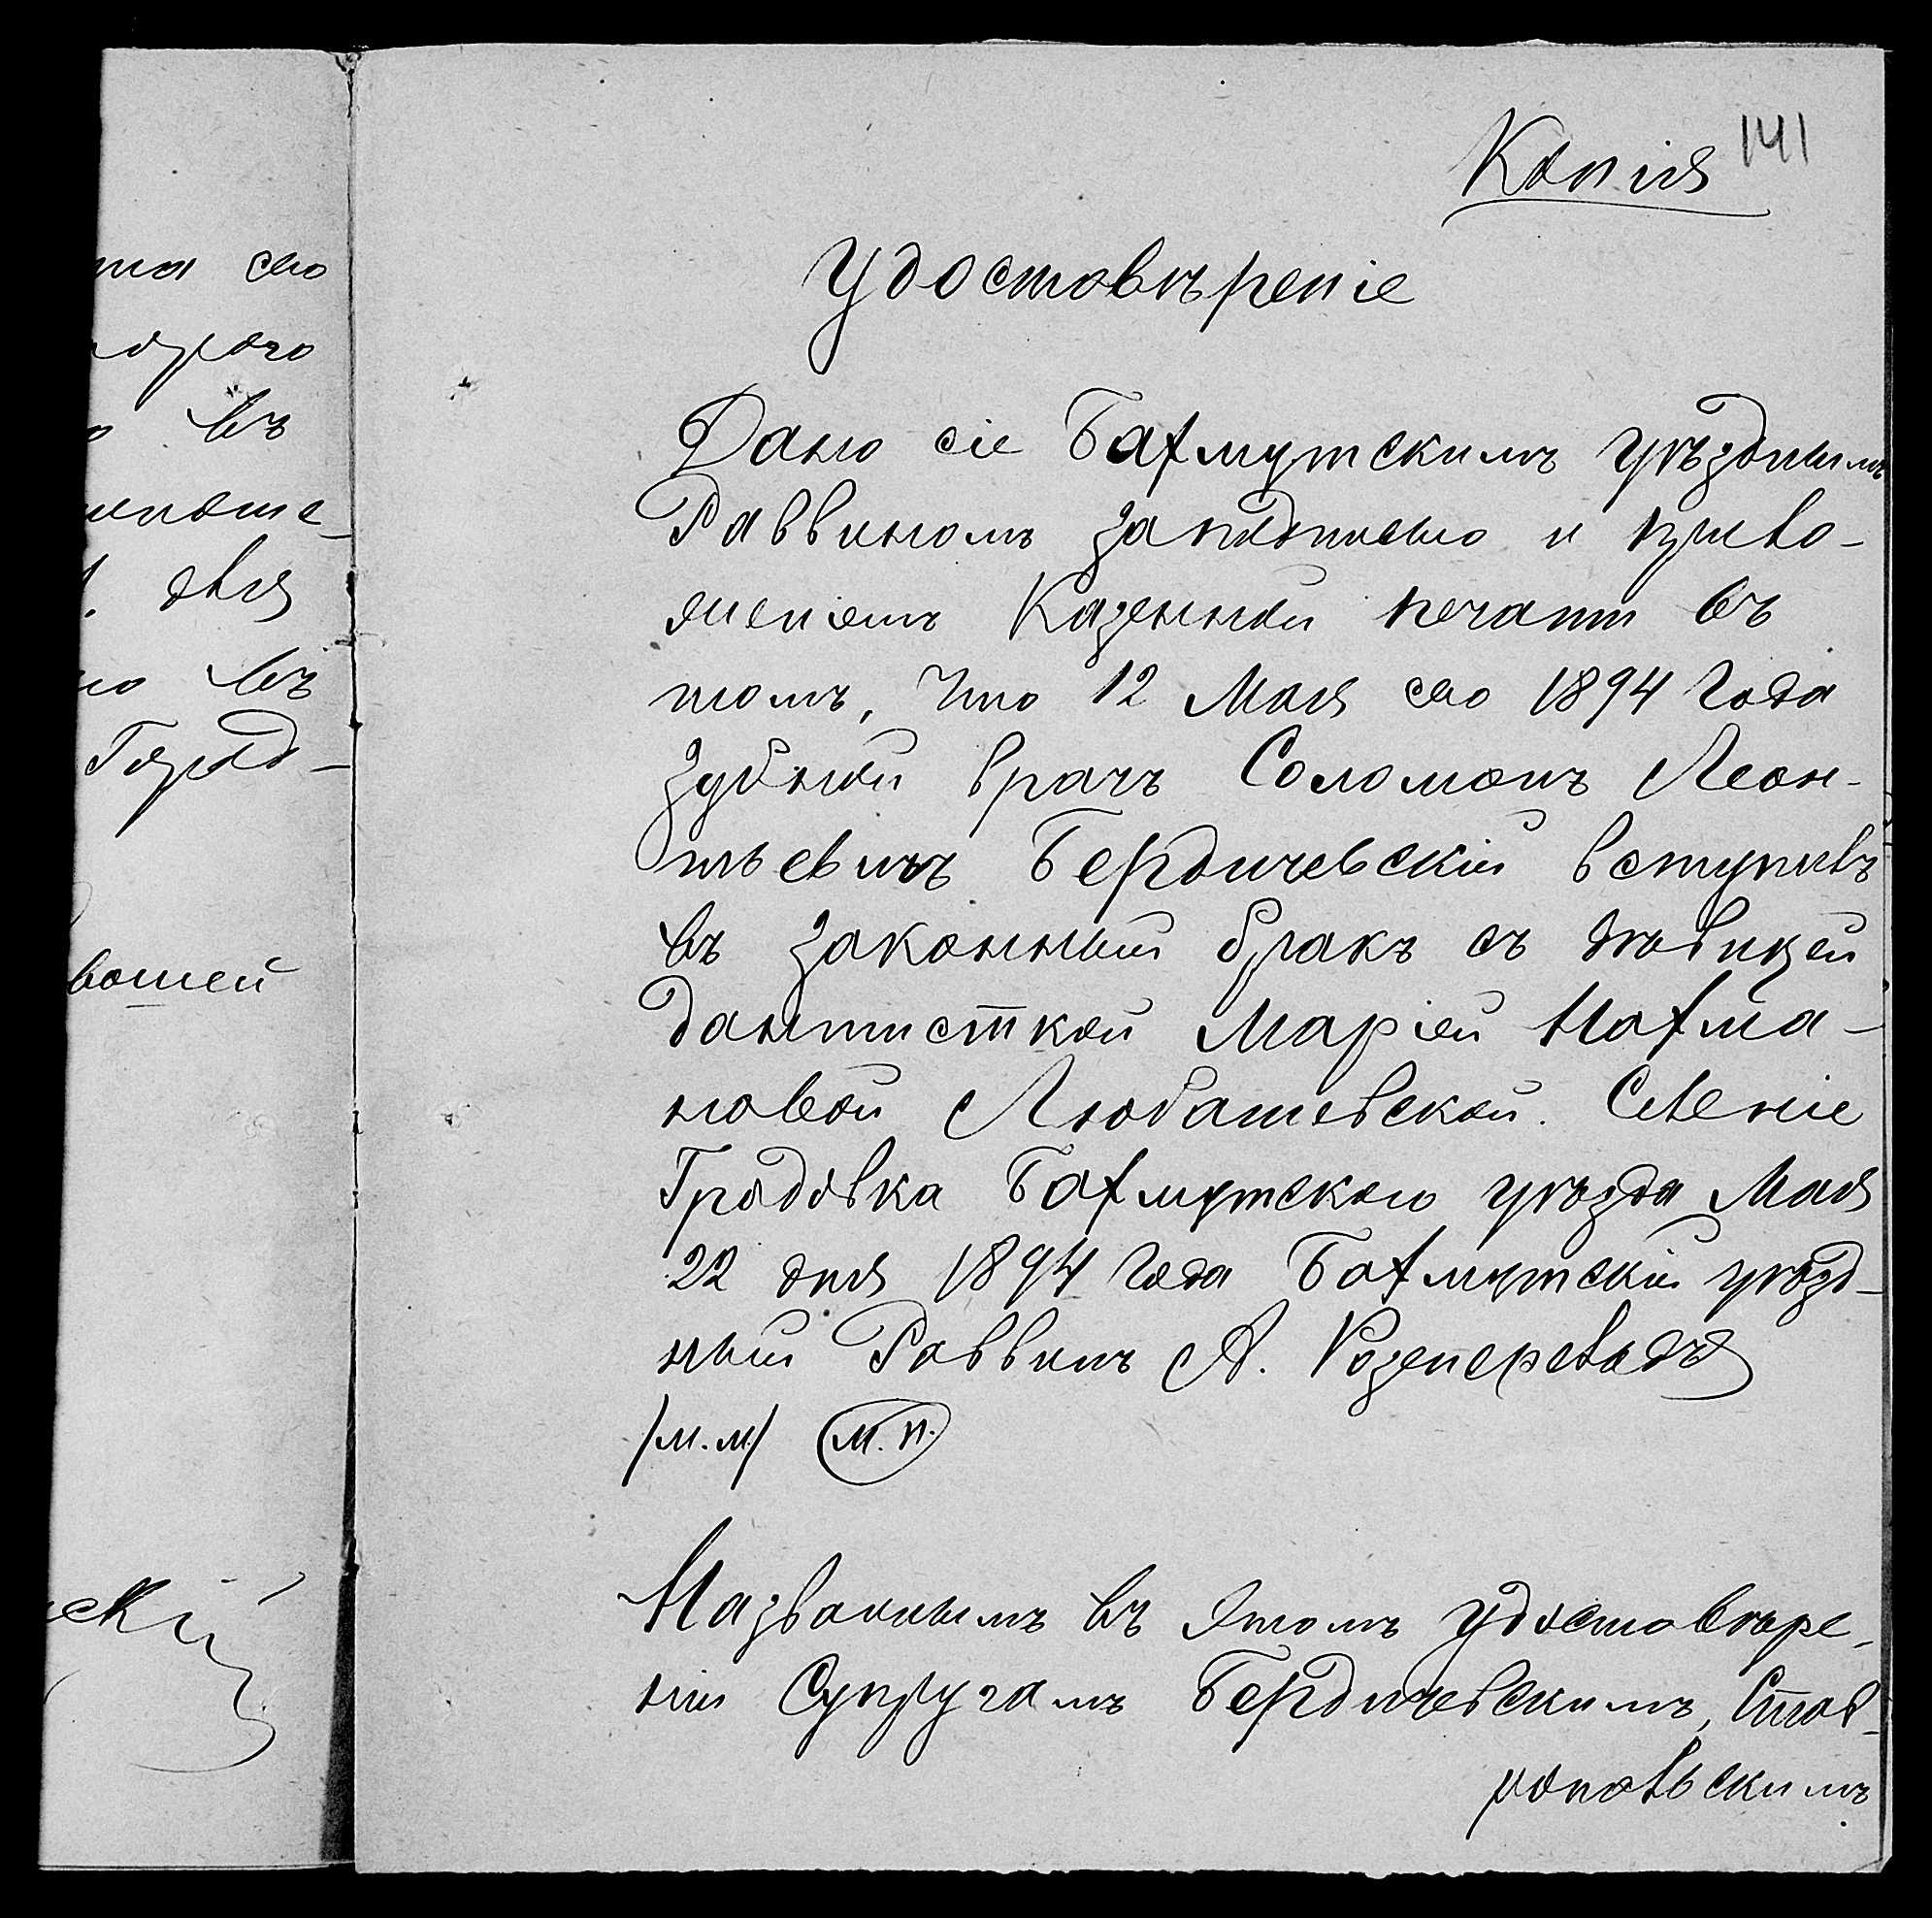 141
Копія
Удостовѣреніе
Дано сіе Бахмутскимъ Уѣзднымъ
Раввиномъ за подписью и прило-
женіемъ Казенной печати въ
томъ, что 12 Мая сего 1894 Года
Зубной врачъ Соломонъ Леон-
тьевичъ Бердичевскій вступилъ
въ законный бракъ съ дѣвицей
дантисткой Маріей Нахма-
новой Любашевской. Селеніе
Гродовка Бахмутского уѣзда Мая
22 дня 1894 Года Бахмутскій уѣзд-
ный Раввинъ А.
/м.м/ М.П.
Названнымъ въ этомъ удостовѣре-
ніи Супругамъ Бердичевскимъ, Став-
ропольскимъ
та сего
въ
дѣла
въ
Город-
вошей
скій